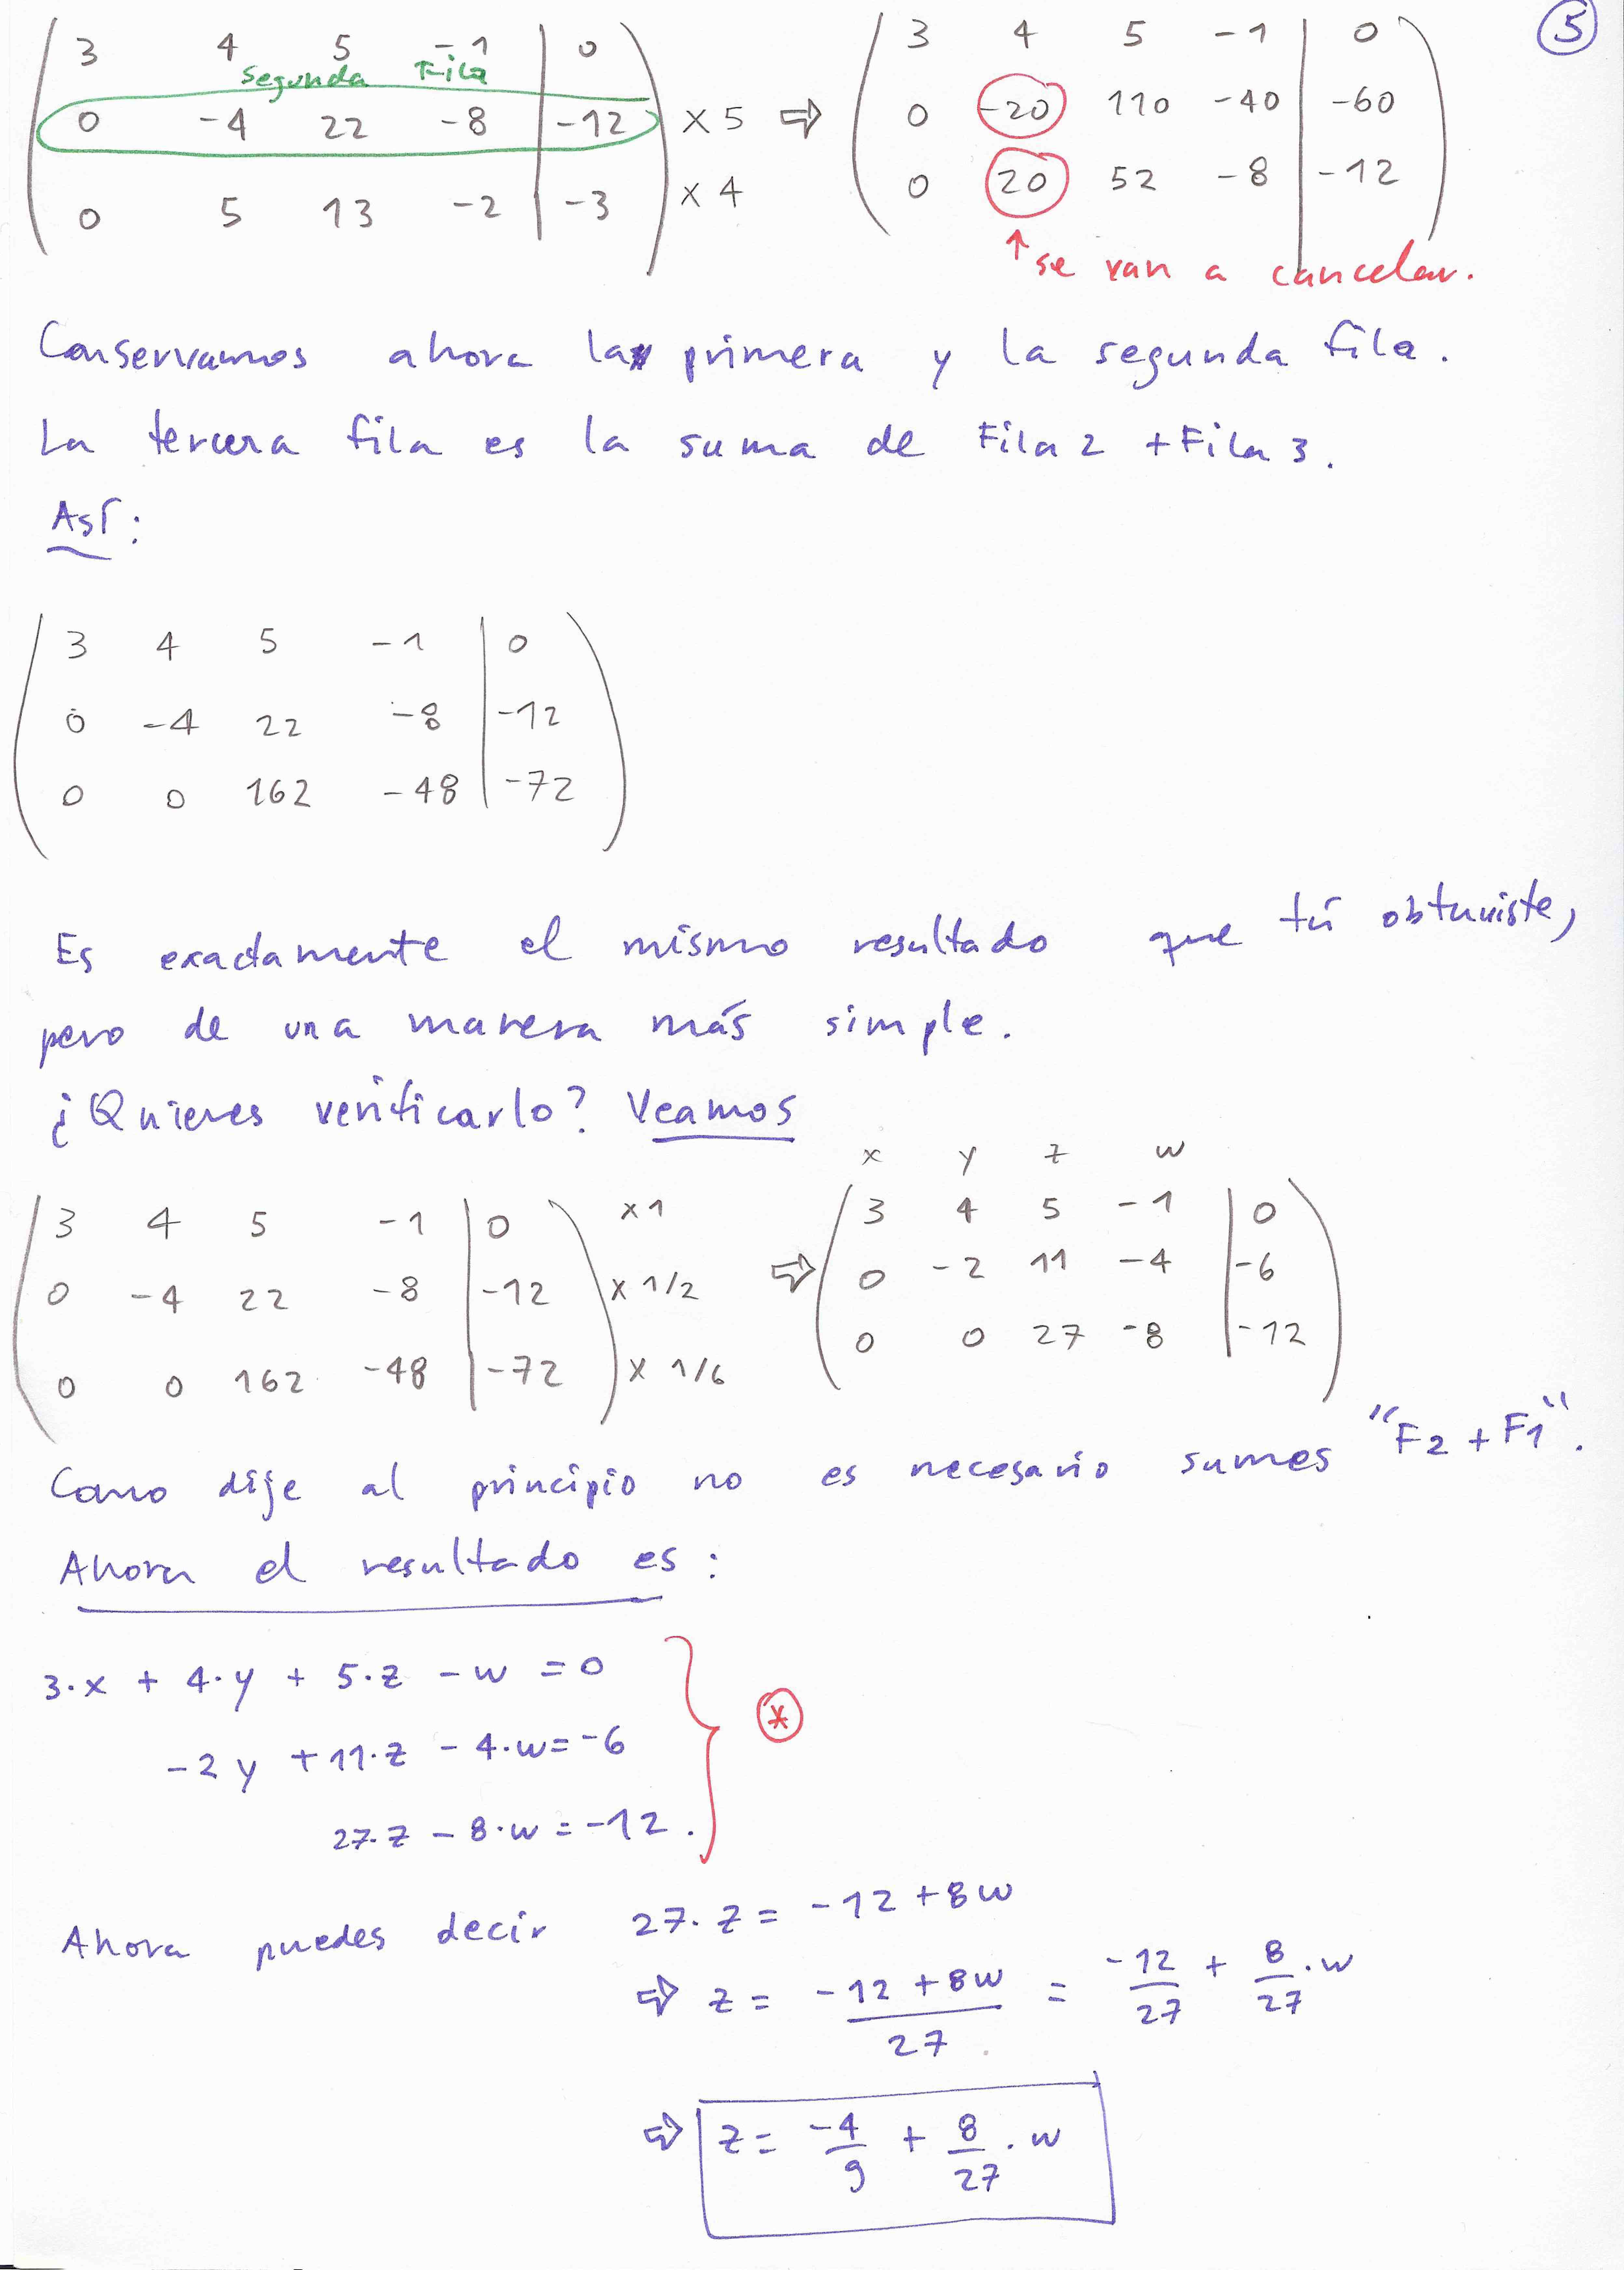 5
3 4 5 -1 | 0
segunda Fila
0 -4 22 -8 | -12 x5
0 5 13 -2 | -3 x4
⇒
3 4 5 -1 | 0
0 -20 110 -40 | -60
0 20 52 -8 | -12
↑ se van a cancelar.
Conservamos ahora la primera y la segunda fila.
La tercera fila es la suma de Fila 2 + Fila 3.
Así:
3 4 5 -1 | 0
0 -4 22 -8 | -12
0 0 162 -48 | -72
Es exactamente el mismo resultado que tú obtuviste,
pero de una manera más simple.
¿Quieres verificarlo? Veamos
3 4 5 -1 | 0 x1
0 -4 22 -8 | -12 x 1/2
0 0 162 -48 | -72 x 1/6
⇒
x y z w
3 4 5 -1 | 0
0 -2 11 -4 | -6
0 0 27 -8 | -12
Como dije al principio no es necesario sumes "F2 + F1".
Ahora el resultado es:
3·x + 4·y + 5·z - w = 0
-2y + 11·z - 4·w = -6
27·z - 8·w = -12.
*
Ahora puedes decir 27·z = -12 + 8w
⇒ z = (-12 + 8w)/27 = -12/27 + 8/27·w
⇒ z = -4/9 + 8/27·w